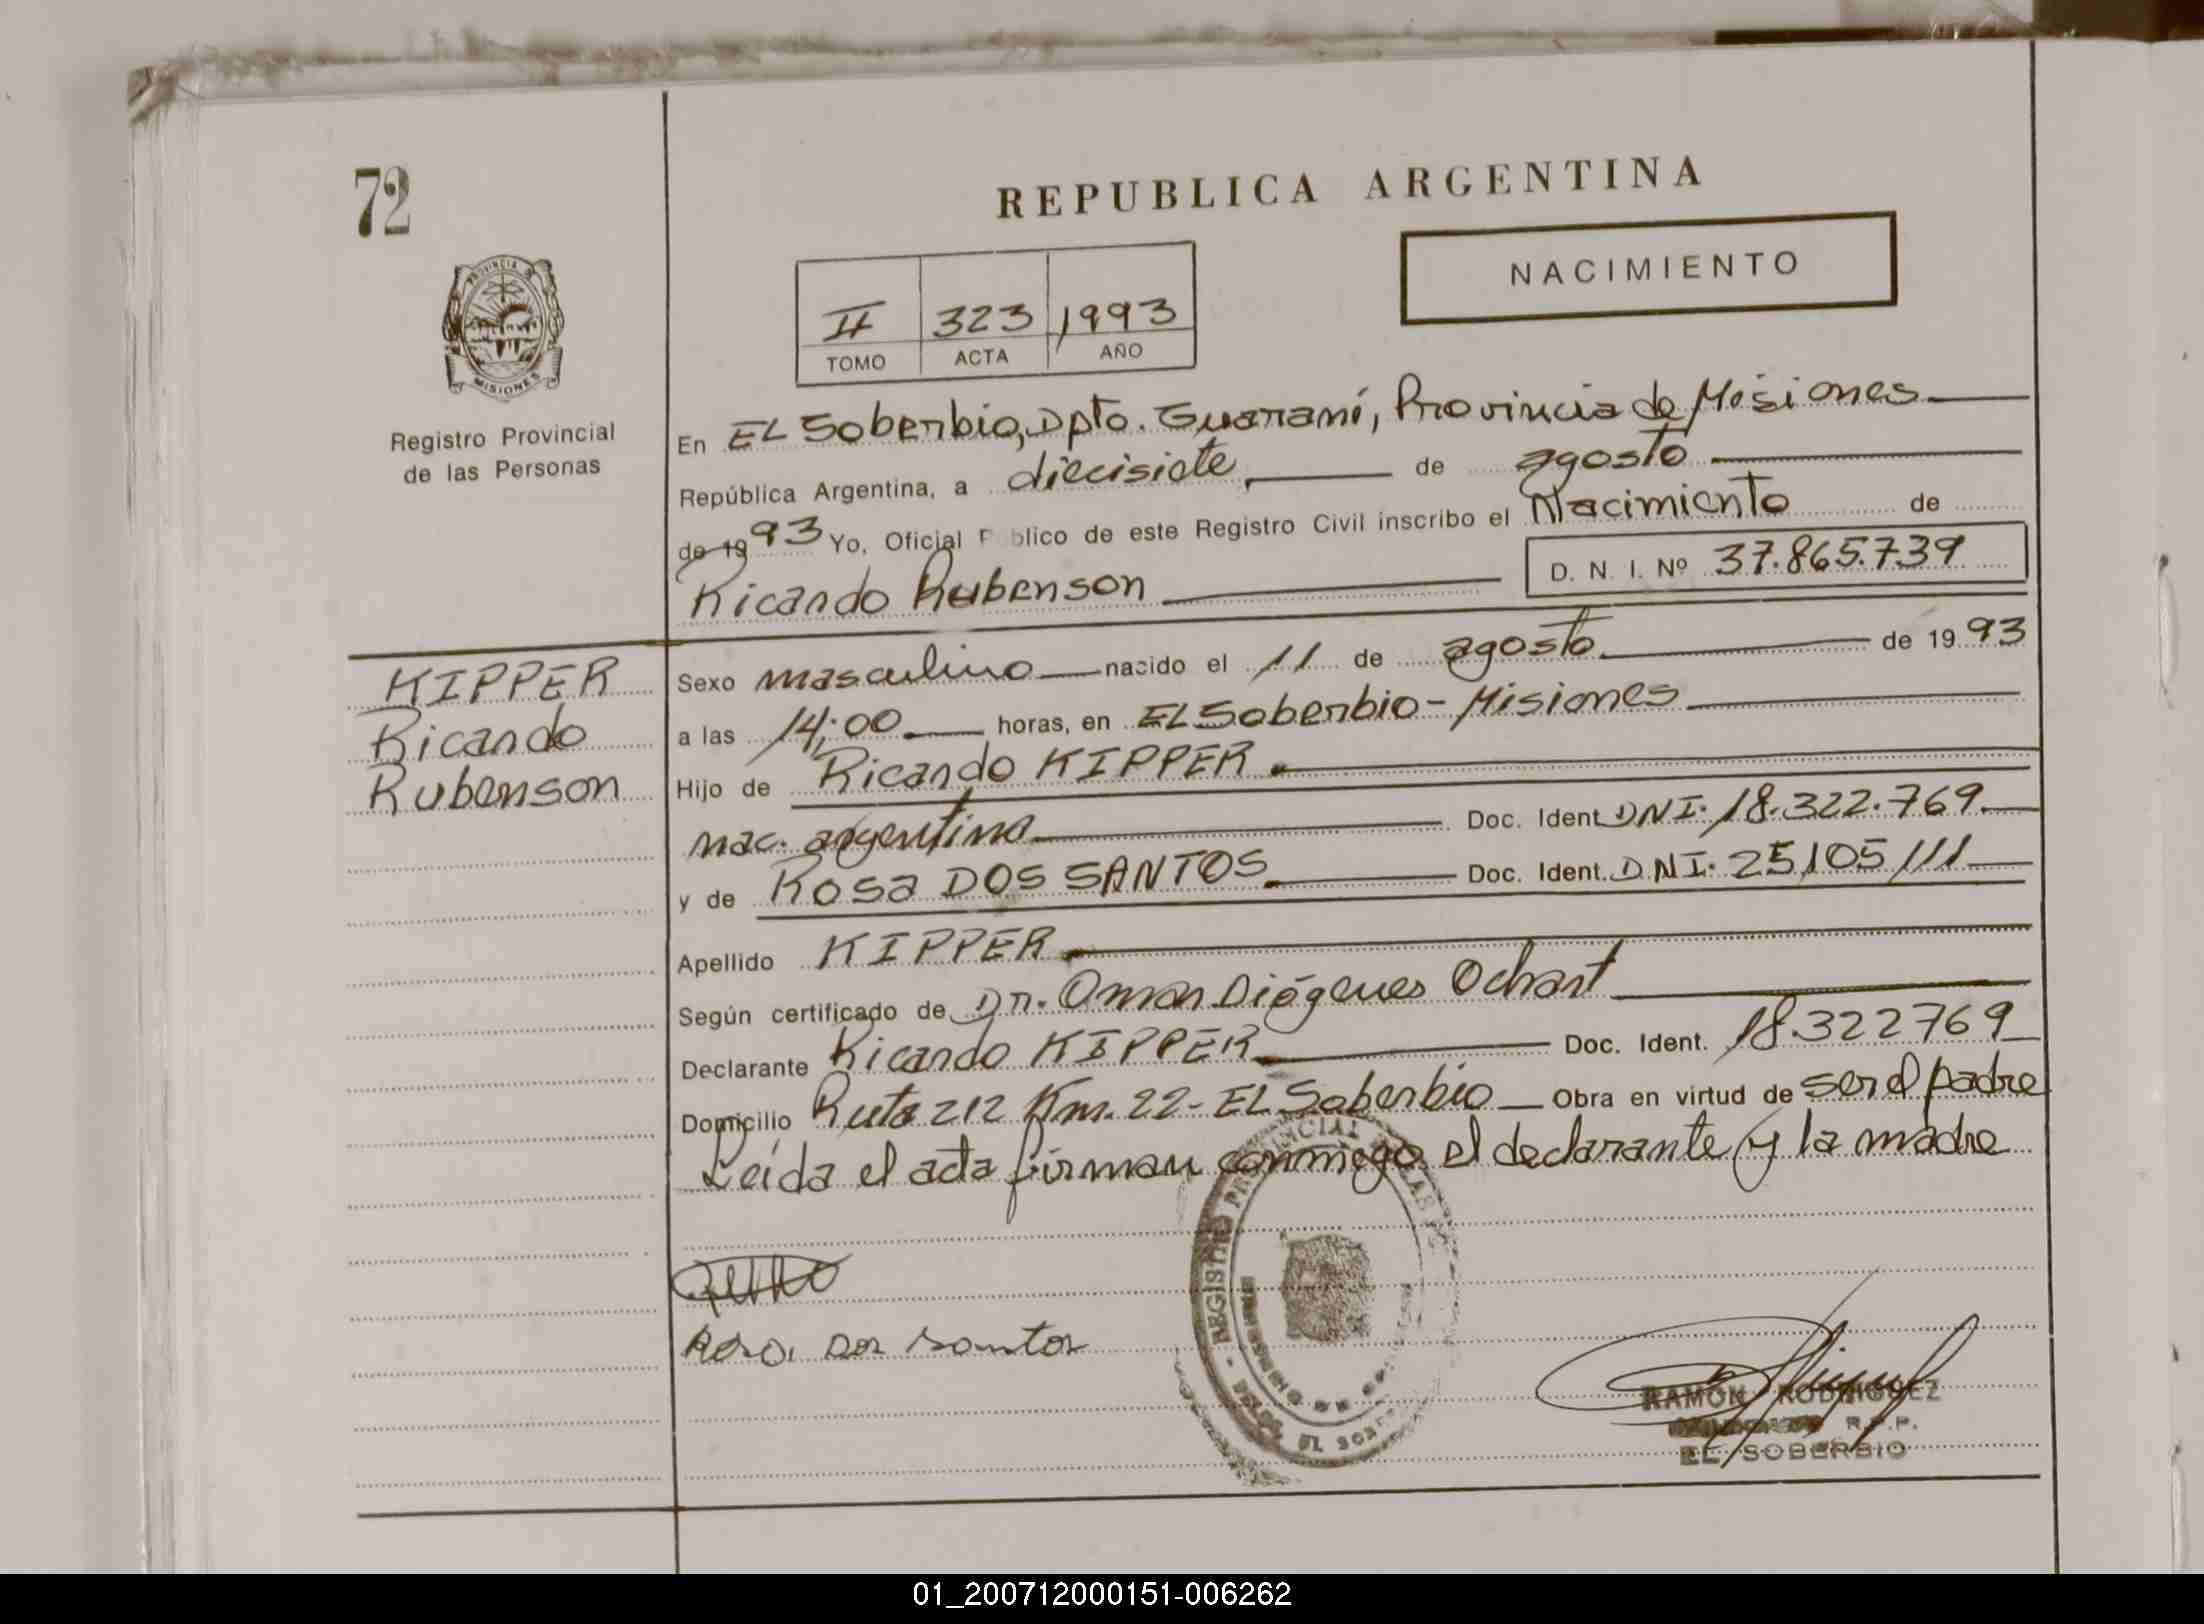 72
REPUBLICA ARGENTINA
NACIMIENTO
PROVINCIA DE
MISIONES
II 323 1993
TOMO ACTA AÑO
Registro Provincial
de las Personas
En EL Soberbio, Dpto. Guaraní, Provincia de Misiones
República Argentina, a diecisiete de agosto
de 1993 Yo, Oficial Público de este Registro Civil inscribo el Nacimiento de
Ricardo Rubenson D. N. I. Nº 37.865.739
KIPPER
Ricardo
Rubenson
Sexo masculino nacido el 11 de agosto de 1993
a las 14:00 horas, en EL Soberbio - Misiones
Hijo de Ricardo KIPPER
nac. argentina Doc. Ident. DNI. 18.322.769
y de Rosa DOS SANTOS Doc. Ident. DNI. 25.105.111
Apellido KIPPER
Según certificado de Dr. Omar Diógenes Ochart
Declarante Ricardo KIPPER Doc. Ident. 18.322769
Domicilio Ruta 212 Km. 22 - EL Soberbio Obra en virtud de ser el padre
Leída el acta firman conmigo el declarante y la madre
Rosa Dos Santos
REGISTRO PROVINCIAL DE LAS
EL SOBERBIO
RAMON RODRIGUEZ
R.P.P.
EL SOBERBIO
01_200712000151-006262